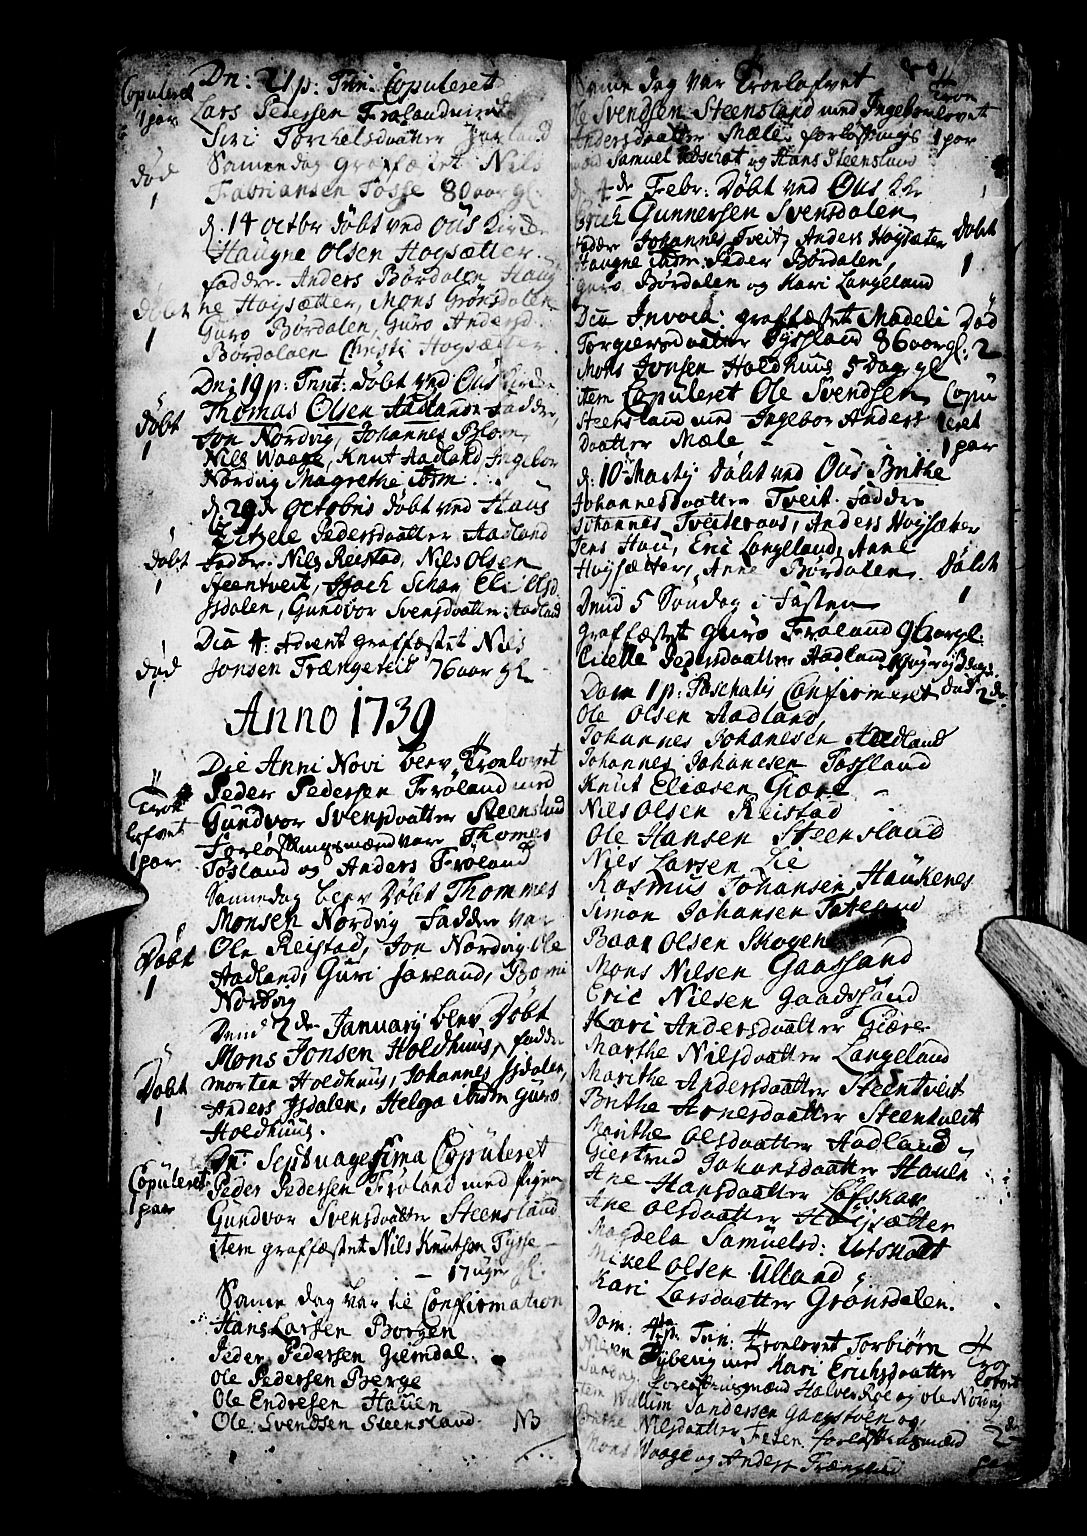 Copuleret
1 par
Dn: 21 p: Trin: Copuleret
Lars Pedersen Frøland med
Siri Torchelsdaatter
Samme dag graffæstet Nils
Tosse 80 aar gl.
død
1
d. 14 octbr døbt ved Ous Kirke
Haugne Olsen Hogsætter.
fadder. Anders Børdalen, Haug
ne Hogsætter, Mons Grønsdalen
Guro Børdalen, Guro Andersd.
Børdalen Christi Hogsætter
Døbt
1
Dn: 19 p: Trint: døbt ved Ous Kirke
Thomas Olsen Aadland fadder,
Jon Nordvig, Johannes Blom,
Nils Waage, Knut Aadland Ingebor
Nordvig Magrethe ibm.
døbt
1
d. 29de Octobris døbt ved Haus
Zitzele Pedersdaatter Aadland
fadder. Nils Reistad, Nils Olsen
Steentveit, Eli Olsd.
Isdalen, Gundvor Svensdaatter Aadland
døbt
1
Dca 4. Advent graffæstet Nils
Jonsen Trængereid 76 aar gl
død
1
Anno 1739
Die Anni Novi blev Troelovet
Peder Pedersen Frøland med
Gundvor Svensdaatter Steensland
Forløftningsmænd var Thomes
Tosland og Anders Frøland
Troe
lofvet
1 par
Sammedag blev Døbt Thommes
Monsen Nordvig Fadder var
Ole Reistad, Jon Nordvig Ole
Aadland, Guri
Nordvig
Døbt
1
Dend 2de Januarij blev Døbt
Mons Jonsen Holdhuus, fadder
Morten Holdhuus, Johannes Isdalen,
Anders Isdalen, Helga ibidm Guro
Holdhuus.
Døbt
1
Dn: Septuagesima Copuleret
Peder Pedersen Frøland med pigen
Gundvor Svensdaatter Steensland
Copuleret
1 par
item graffæstet Nils Knutsen Tysse
17 uger gl.
Samme dag var til Confirmation
Hans Larsen Borgen
Peder Pedersen Giemdal.
Ole Pedersen Berge
Ole Endresen Hauen
Ole Svendsen Steensland. NB
Samme dag var Troelofvet
Ole Svendsen Steensland med Ingebor
Andersdaatter Mæle, forløftnings
Samuel Udschot og Hans Steensland
4
Troe
lovet
1 par
d. 4de Febr: Døbt ved Ous Kirke
Brith Gunnersen Svensdalen
fadder Johannes Tveit, Anders Hogsæter
Haugne ibdm: Peder Børdalen,
Guro Børdalen og Kari Langeland
Døbt
1
Dca Invoca: graffæstet Madeli
Torgiersdaatter Tyssland 86 aar gl:
Mons Jonsen Holdhuus 5 Dage gl
Død
2
item Copuleret Ole Svendsen
Steensland med Ingebor Anders
daatter Mæle
Copu
leret
1 par
d: 10 Martij Døbt ved Ous Brithe
Johannesdaatter Tveit. fadder
Johannes Tveiteraas, Anders Hogsæter
Jens Hau, Eric Langeland, Anne
Hogsætter, Anne Børdalen.
Døbt
1
Dend 5 Søndag i Fasten
graffæstet Guro Frøland 96 aar gl:
Citelle Pedersdaatter Aadland
død 2de
Dom 1 p: Paschatis Confirmeret
Ole Olsen Aadland,
Johannes Johanesen Aadland
Johannes Johanesen Tossland
Knut Eliæsen Giære
Nils Olsen Reistad
Ole Hansen Steensland
Nils Larsen Lie
Rasmus Johansen Haukenes
Simon Johansen
Baar Olsen Skogen
Mons Nilsen Gaassand
Eric Nilsen Gaadssand
Kari Andersdaatter Giære
Marthe Nilsdaatter Langeland
Marithe Andersdaatter Steentveit
Brithe Arnesdaatter Steentveit
Marithe Olsdaatter Aadland
Giertrud Johansdaatter Hauen
Ane Hansdaatter Løfskar
Ane Olsdaatter Hogsætter
Magdela Samuelsd: Utskott
Mikel Olsen Ulland
Kari Larsdaatter Grønsdalen.
Dom: 4ta p: Trin: Troelovet Torbiørn
Nilsen Nyborg med Kari Erichsdaatter
forløftningsmænd Halvor Roe og Ole Nordvig
4
Troe
lovet
Item Willum Sandersen Gangstøen og
Brithe Nilsdaatter Feten. forløftningsmænd
Mons Waage og Anders Trængereid
2de
par